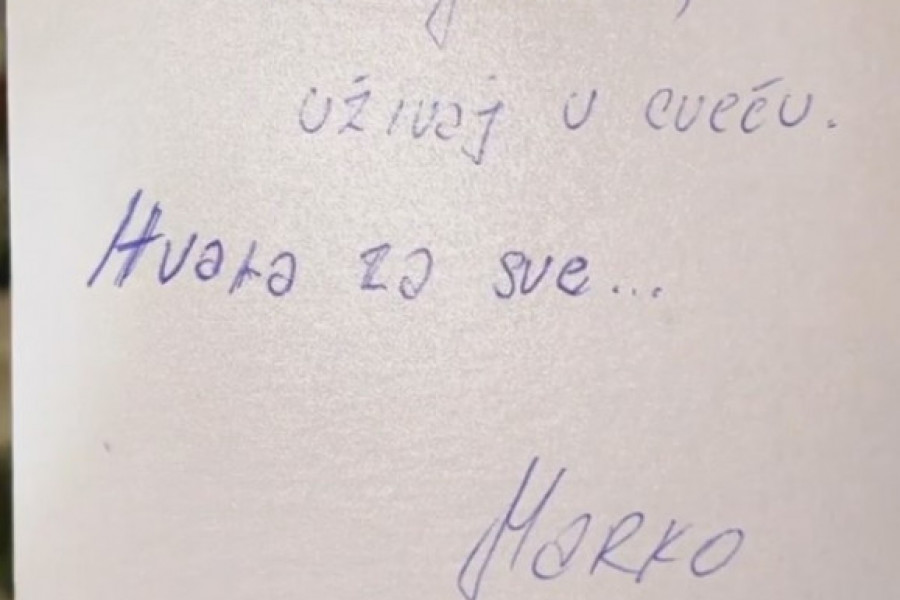 uživaj u cveću.
Hvala za sve...
Marko